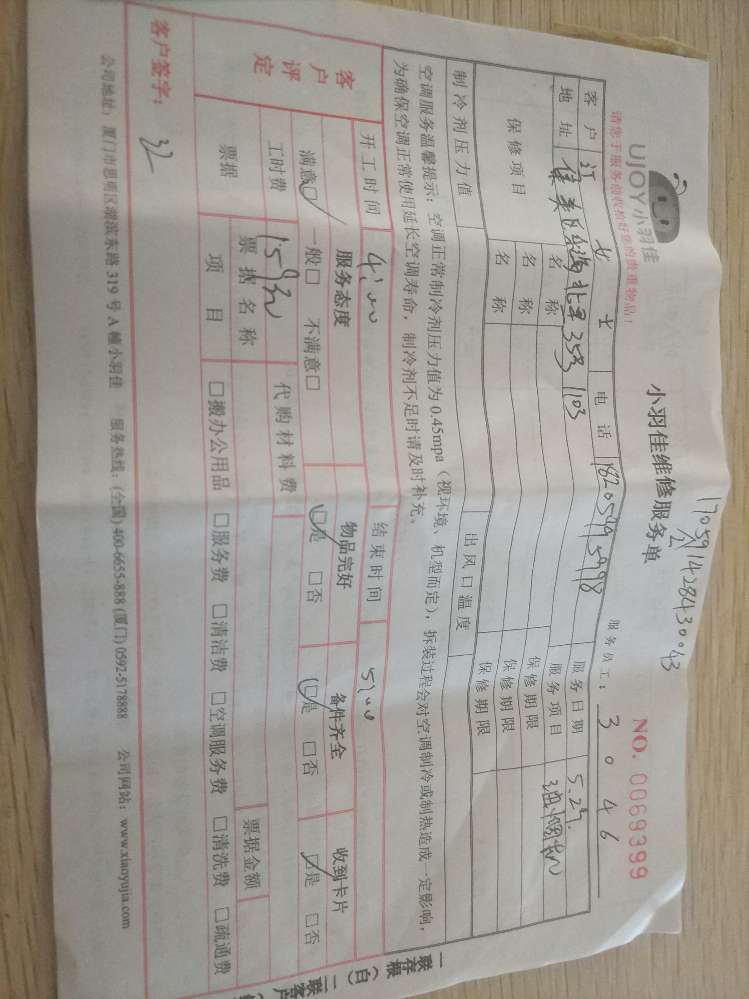 UJOY小羽佳
请您于服务前收拾好您的贵重物品!
小羽佳维修服务单
NO. 0069399
服务员工: 3046
客户 江 女士 电话 服务日期 5.29.
地址 353 1103 服务项目 油烟机
保修项目 名称 保修期限
名称 保修期限
名称 保修期限
制冷剂压力值 出风口温度
空调服务温馨提示:空调正常制冷剂压力值为0.45mpa(视环境、机型而定),拆装过程会对空调制冷或制热造成一定影响,
为确保空调正常使用延长空调寿命,制冷剂不足时请及时补充。
开工时间 4:00 结束时间 5:00
客户评定 服务态度 物品完好 备件齐全 收到卡片
满意☑ 一般□ 不满意□ ☑是 □否 ☑是 □否 ☑是 □否
工时费 159元 代购材料费
票据 票据名称 票据金额
项目 □搬办公用品 □服务费 □清洁费 □空调服务费 □清洗费 □疏通费
客户签字:
公司地址:厦门市思明区湖滨东路319号A幢小羽佳 服务热线:(全国)400-6655-888 (厦门)0592-5178888 公司网站:www.xiaoyujia.com
一联存根(白) 二联客户